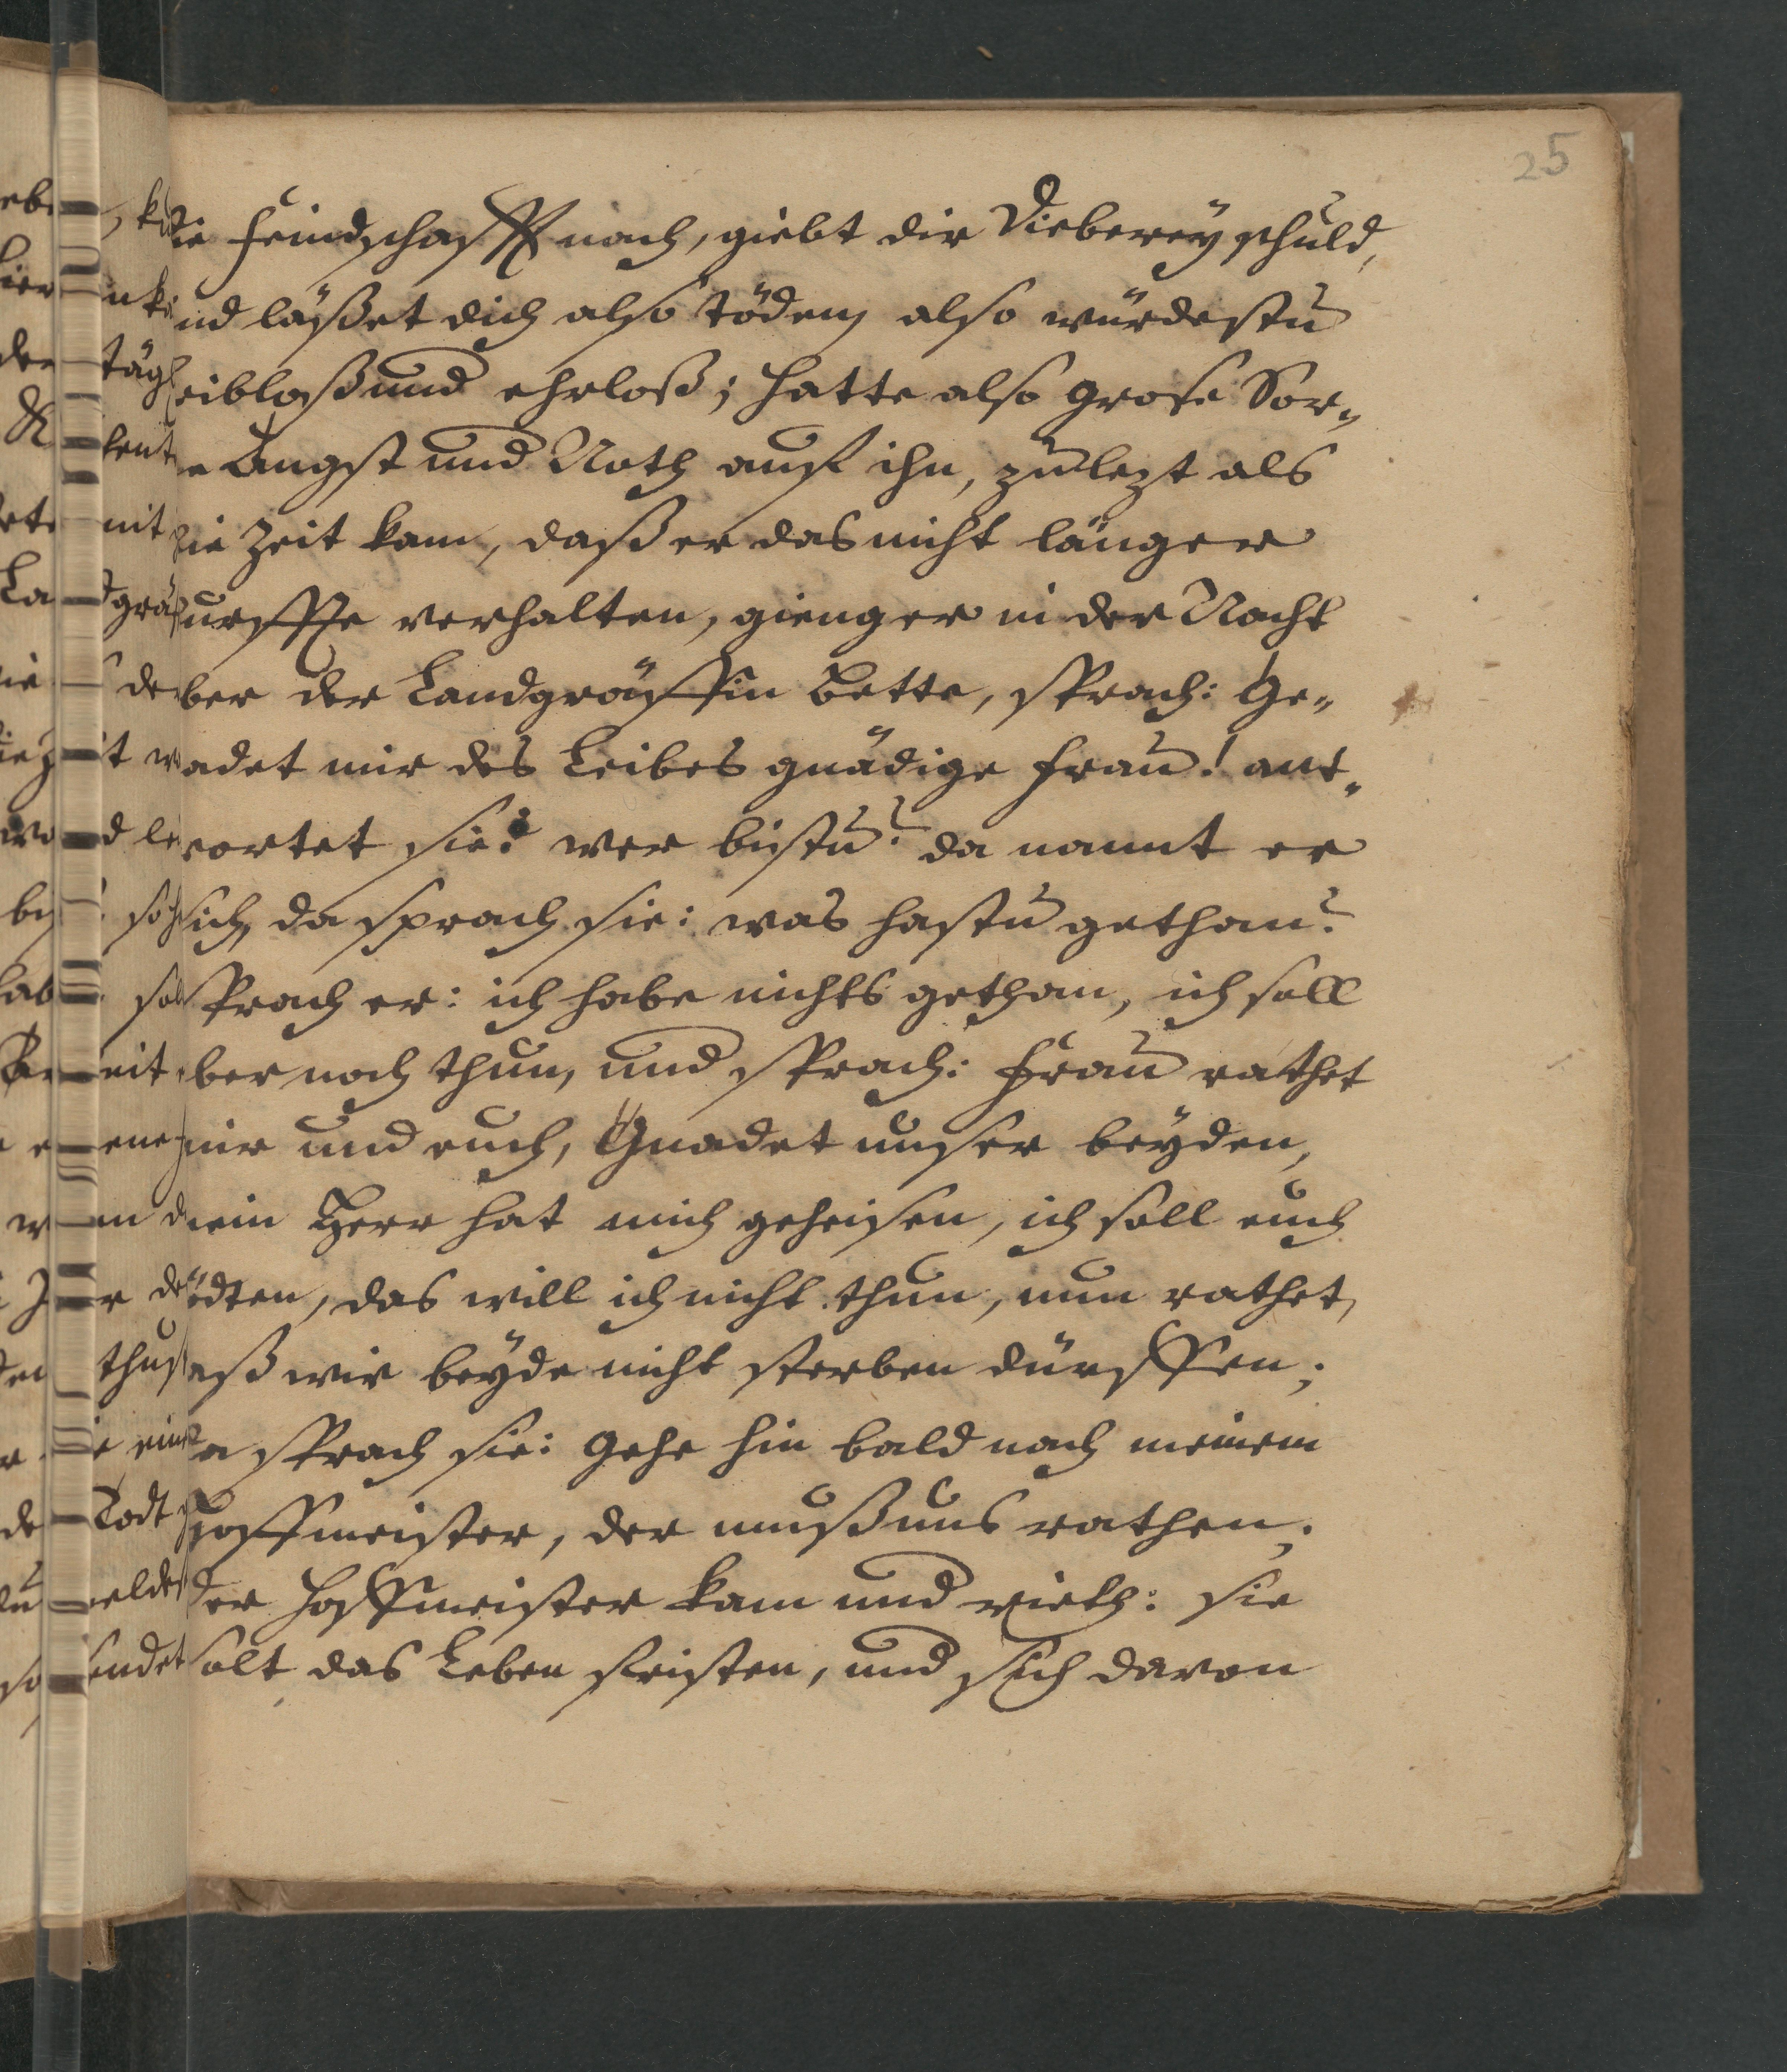 25
die Feindschafft nach, giebt dir Dieberey schuld,
und läßet dich also töden, also würdestu
leibloß und ehrloß; hatte also große Sor„
ge Angst und Noth auf ihn, zulezt als
die Zeit kam, daß er das nicht länger
durffte verhalten, gieng er in der Nacht
über der Landgräffin Bette, sprach: Ge„
nadet mir des Leibes gnädige Frau! ant„
wortet sie: wer bistu? da nannt er
sich, da sprach sie: was hastu gethan?
sprach er: ich habe nichts gethan, ich soll
aber noch thun, und sprach: Frau rathet
mir und euch, Gnadet unser beyden,
mein Herr hat mich geheisen, ich soll euch
tödten, das will ich nicht thun, nun rathet,
daß wir beyde nicht sterben dürffen;
da sprach sie: gehe hin bald nach meinem
Hoffmeister, der muß uns rathen;
der Hoffmeister kam und rieth: sie
solt das Leben fristen, und sich davon